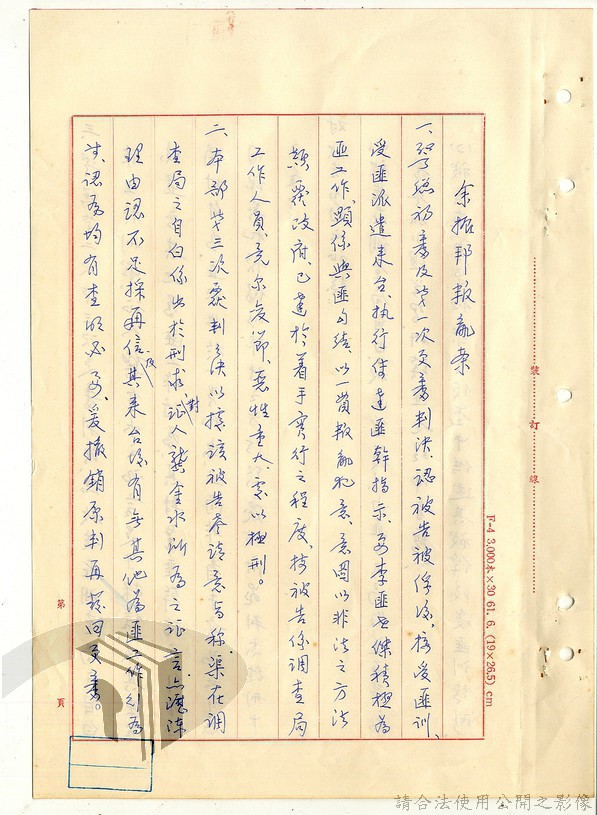 余拓邦叛亂案
一、警總初審及第一次更審判決、認被告被俘後、接受匪訓、
受匪派遣來台、執行傳達匪幹指示、要李匪世傑積極為
匪工作、顯係與匪勾結、以一貫叛亂犯意、意圖以非法之方法
顛覆政府、已達於着手實行之程度、按被告係調查局
工作人員、竟爾變節、惡性重大、處以極刑。
二、本部第三次覆判決以據該被告聲請意旨稱、渠在調
查局之自白係出於刑求對證人龔金水所為之證言亦歷陳
理由認不足採再信及其來台後有無其他為匪工作行為
等、認為均有查明必要、爰撤銷原判再發回更審。
裝訂線
F-4 3,000本×30 61. 6. (19×26.5) cm
第 頁
請合法使用公開之影像